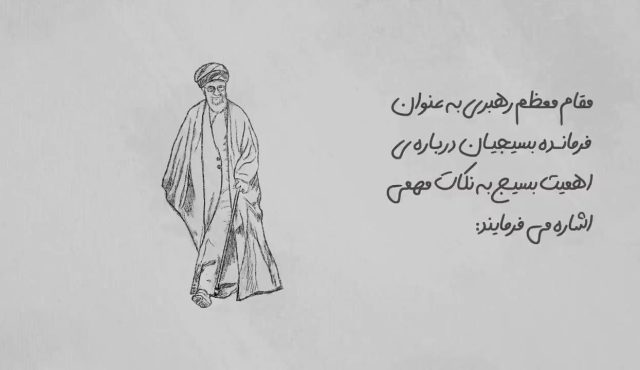 مقام معظم رهبری به عنوان
فرمانده بسیجیان درباره ی
اهمیت بسیج به نکات مهمی
اشاره می فرمایند: